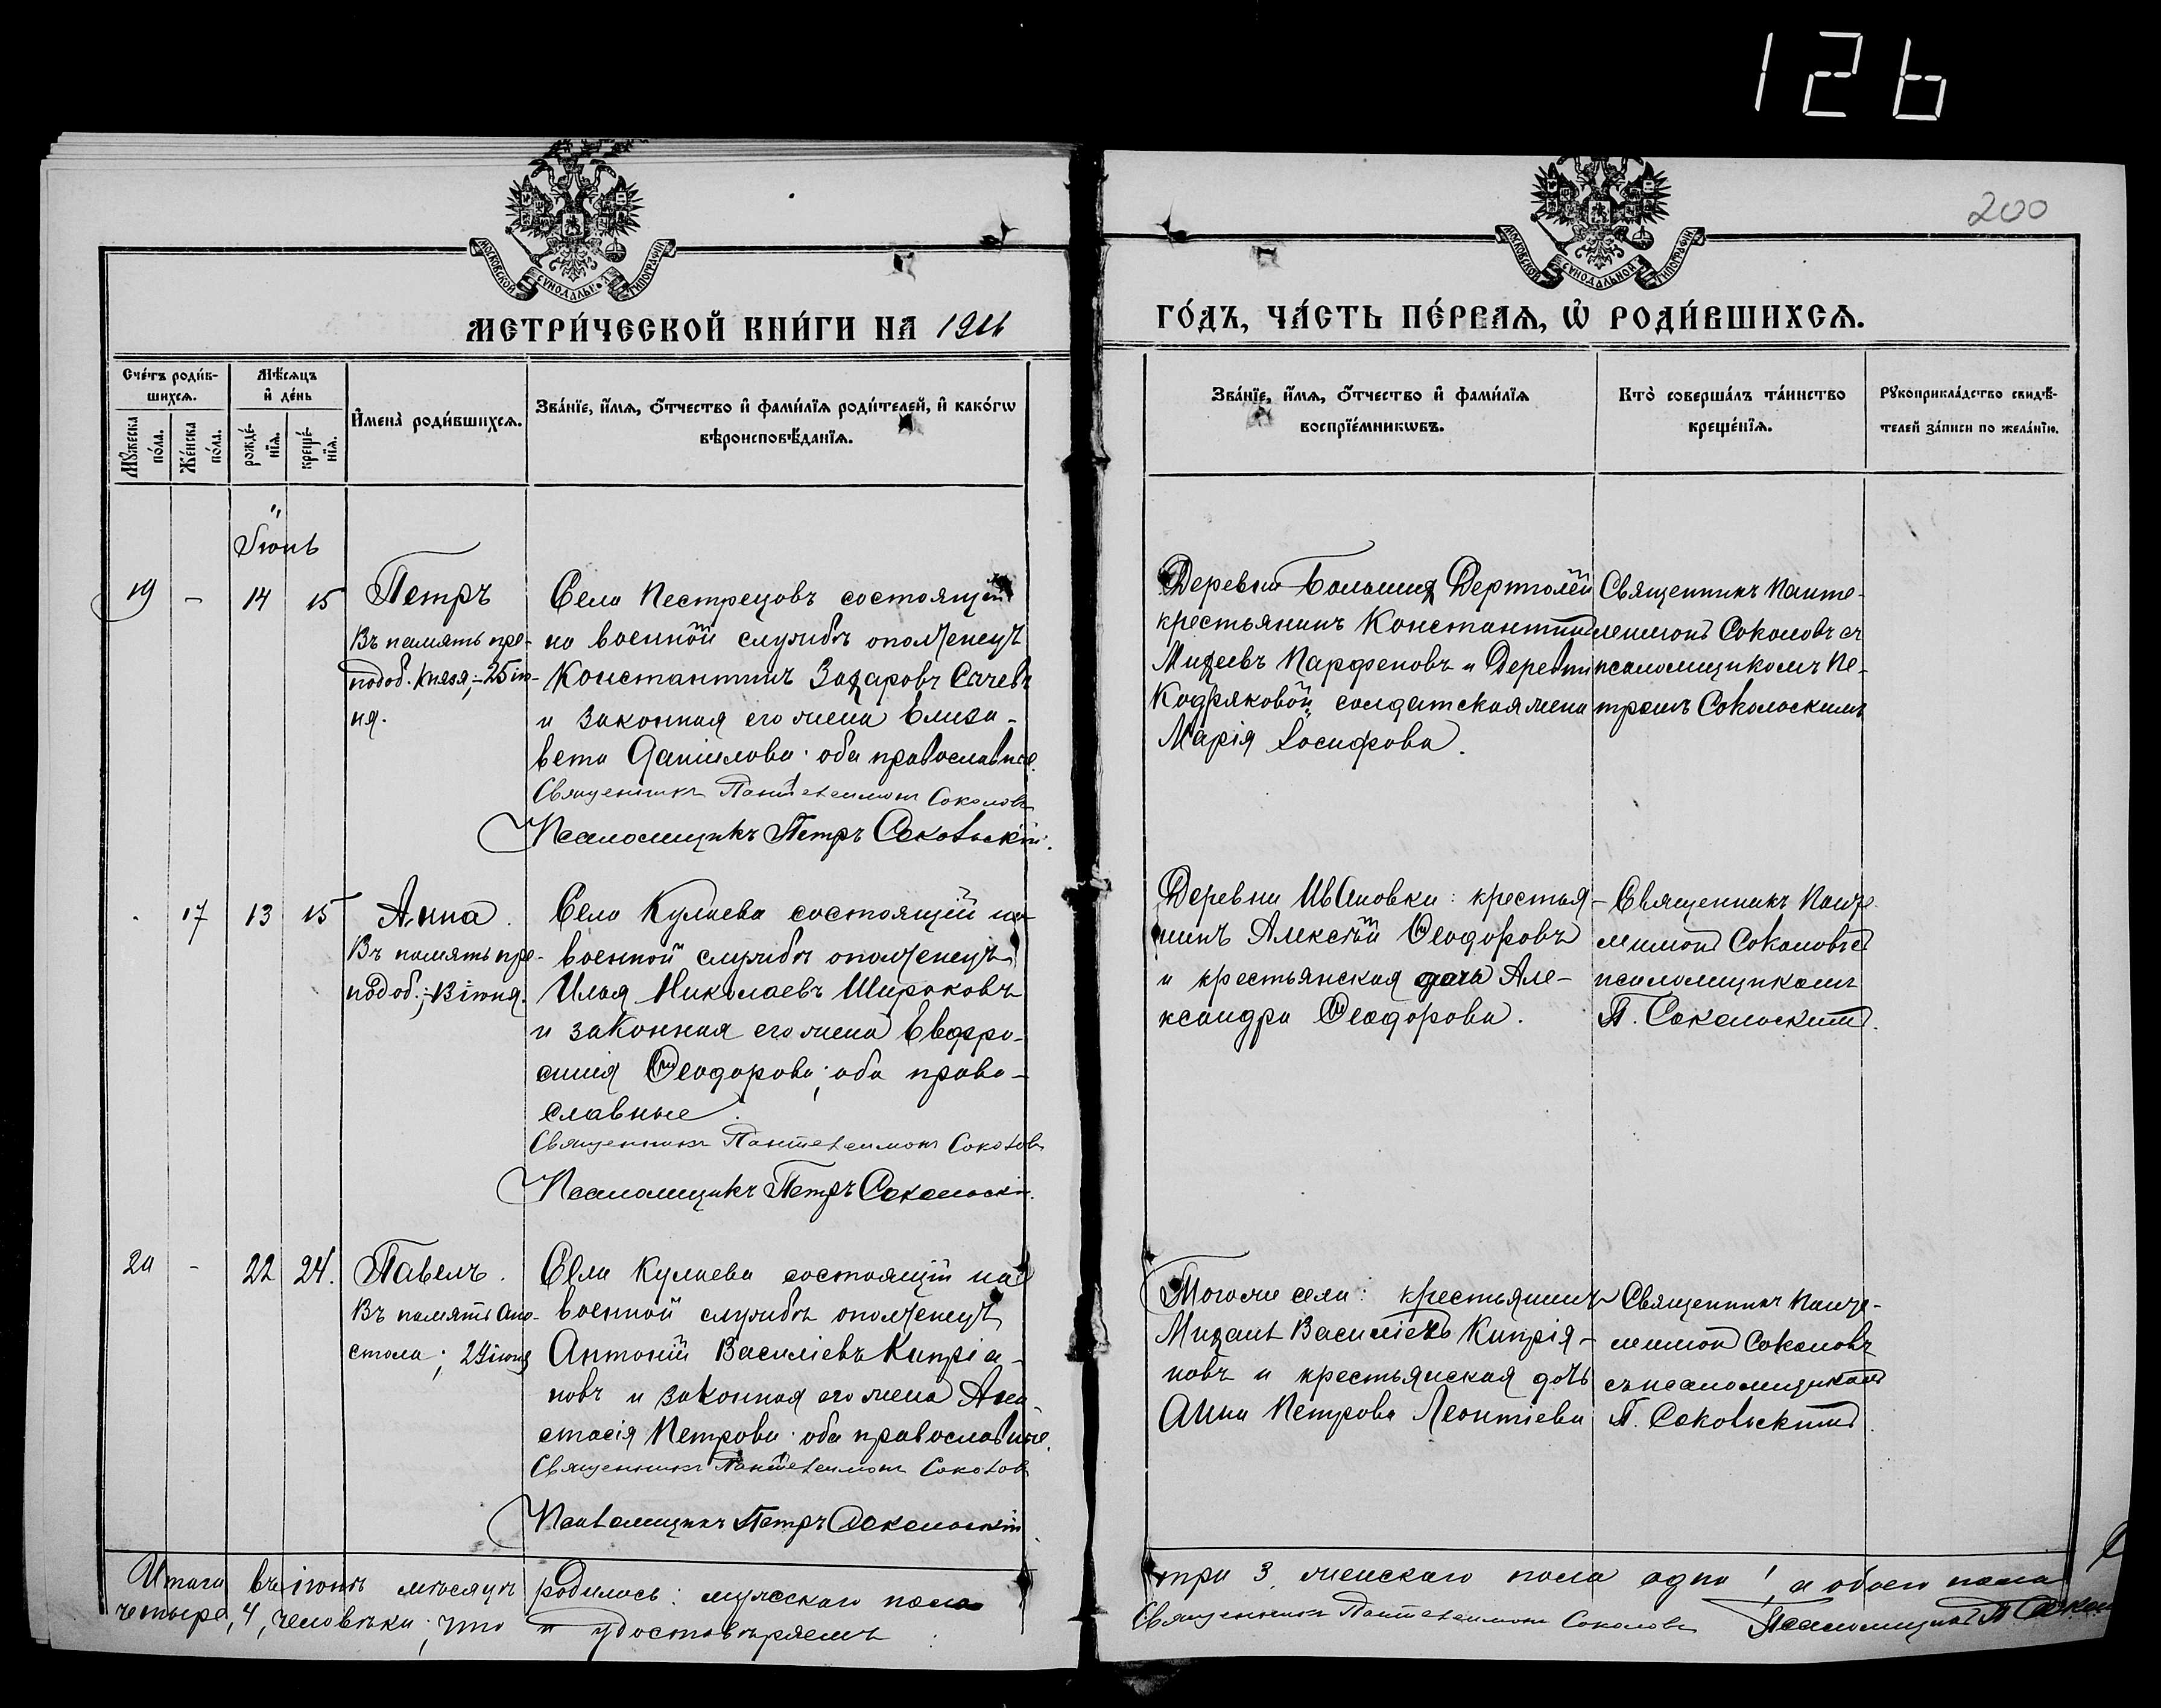 126
200
МОСКОВСКОЙ СУНОДАЛЬНОЙ ТИПОГРАФІИ
МОСКОВСКОЙ СУНОДАЛЬНОЙ ТИПОГРАФІИ
МЕТРИ́ЧЕСКОЙ КНИ́ГИ НА 1916
ГО́ДЪ, ЧА́СТЬ ПЕ́РВАЯ, Ѡ҆ РОДИ́ВШИХСЯ.
Сче́тъ роди́в-
шихся.
Мꙋ́жеска по́ла.
Же́нска по́ла.
Мѣ́сяцъ
и҆ де́нь
рожде́-
нїя.
креще́-
нїя.
И҆мена̀ роди́вшихся.
Зва́нїе, и҆́мя, ѻ҆́тчество и҆ фами́лїя роди́телей, и҆ како́гѡ
вѣроисповѣ́данїя.
Зва́нїе, и҆́мя, ѻ҆́тчество и҆ фами́лїя
воспрїе́мникѡвъ.
Кто̀ соверша́лъ та́инство
креще́нїя.
Рꙋкоприкла́дство свидѣ́-
телей за́писи по жела́нїю.
Іюнь
19 - 14 15
Петръ
Въ память пре-
подоб. Князя; - 25 ію-
ня.
Села Пестрецовъ состоящій
на военной службѣ ополченецъ
Константинъ Захаровъ Сачевъ
и законная его жена Елиза-
вета Даніилова: оба православные.
Священникъ Пантелеимонъ Соколовъ
Псаломщикъ Петръ Сокольскій.
Деревни Большихъ Дертюлей
крестьянинъ Константинъ
Михеевъ Парфеновъ и Деревни
Кодряковой, солдатская жена
Марія Іосифова.
Священникъ Панте-
леимонъ Соколовъ съ
псаломщикомъ Пе-
тромъ Сокольскимъ
17 13 15
Анна.
Въ память пре-
подоб.; - 13 іюня.
Села Кулаева состоящій на
военной службѣ ополченецъ
Илья Николаевъ Широковъ
и законная его жена Евфро-
синія Ѳеодорова; оба право-
славные.
Священникъ Пантелеимонъ Соколовъ
Псаломщикъ Петръ Сокольскій.
Деревни Ивановки: крестья-
нинъ Алексѣй Ѳеодоровъ
и крестьянская дочь Але-
ксандра Ѳеодорова.
Священникъ Панте-
леимонъ Соколовъ съ
псаломщикомъ
П. Сокольскимъ.
20 - 22 24.
Павелъ.
Въ память апо-
стола; 29 іюня
Села Кулаева состоящій на
военной службѣ ополченецъ
Антоній Василіевъ Кипріа-
новъ и законная его жена Ана-
стасія Петрова: оба православные.
Священникъ Пантелеимонъ Соколовъ
Псаломщикъ Петръ Сокольскій
Того же села: крестьянинъ
Михаилъ Василіевъ Кипрія-
новъ и крестьянская дочь
Анна Петрова Леонтіева
Священникъ Панте-
леимонъ Соколовъ
съ псаломщикомъ
П. Сокольскимъ.
Итого въ іюнѣ мѣсяцѣ родилось: мужскаго пола
три 3, женскаго пола одна 1, а обоего пола
четыре, 4, человѣка; что и удостовѣряемъ:
Священникъ Пантелеимонъ Соколовъ Псаломщикъ П. Сокол